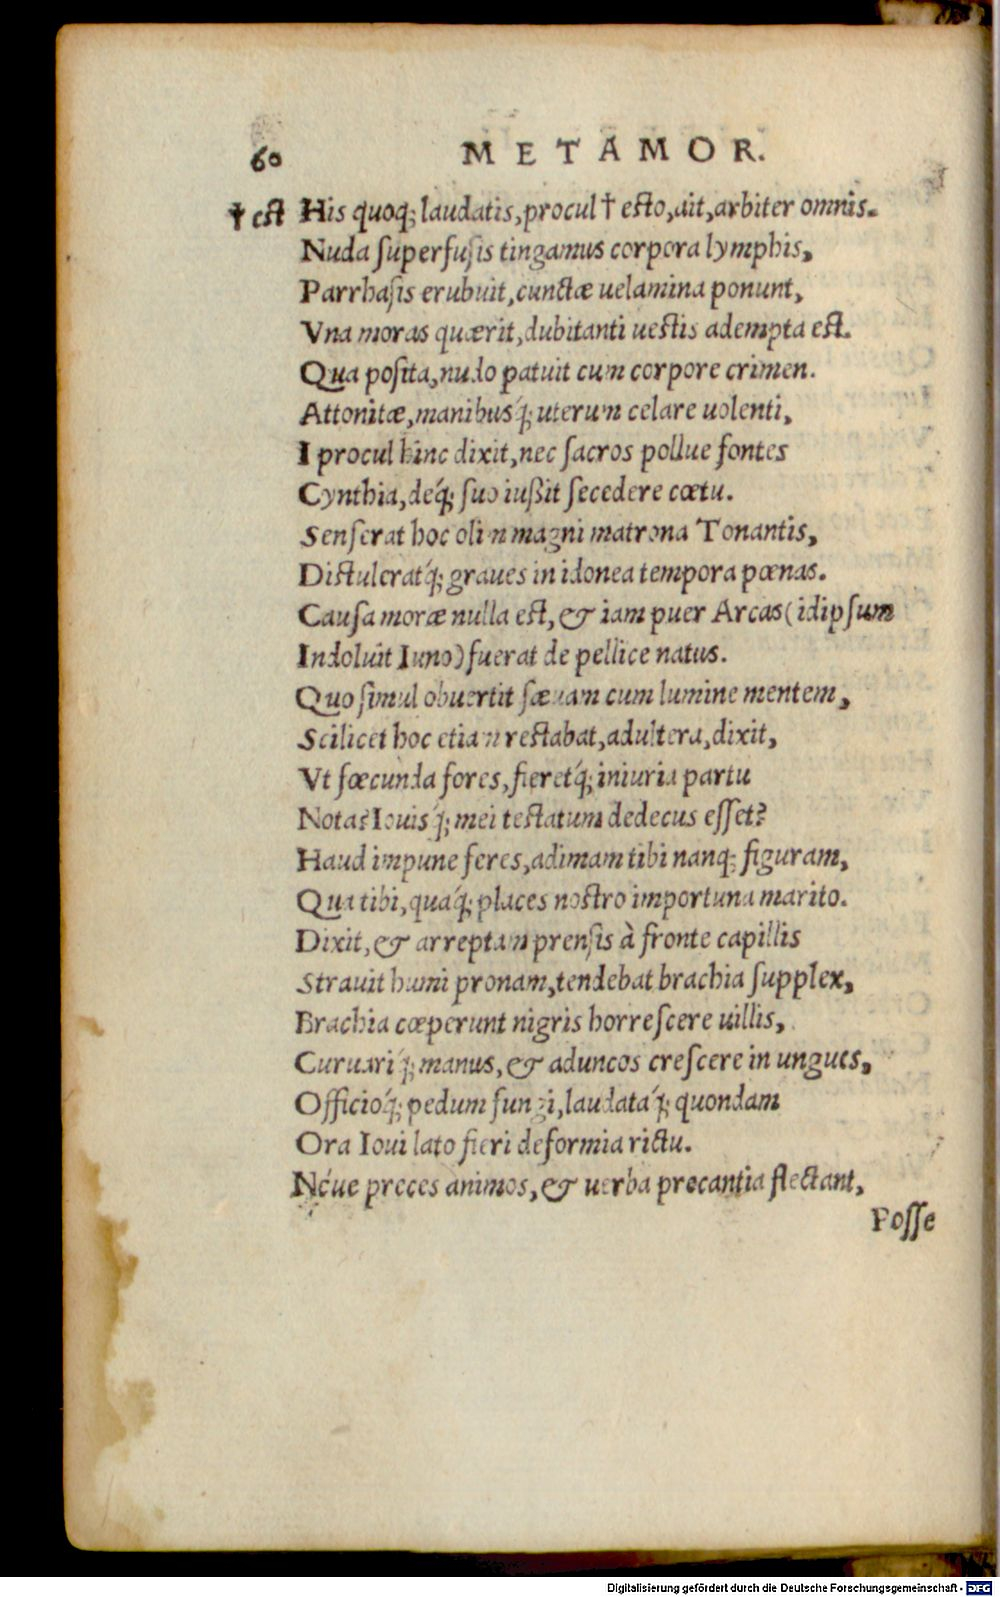 60 METAMOR.
† est His quoq; laudatis, procul † esto, ait, arbiter omnis.
Nuda ſuperfuſis tingamus corpora lymphis,
Parrhaſis erubuit, cunctæ uelamina ponunt,
Vna moras quærit, dubitanti ueſtis adempta eſt.
Qua poſita, nudo patuit cum corpore crimen.
Attonitæ, manibuś q; uterum celare uolenti,
I procul hinc dixit, nec ſacros pollue fontes
Cynthia, deq́; ſuo iußit ſecedere cœtu.
Senſerat hoc olim magni matrona Tonantis,
Diſtuleratq́; graues in idonea tempora pœnas.
Cauſa moræ nulla eſt, & iam puer Arcas (id ipſum
Indoluit Iuno) fuerat de pellice natus.
Quo ſimul obuertit ſæuam cum lumine mentem,
Scilicet hoc etiam reſtabat, adultera, dixit,
Vt fœcunda fores, fieretq́; iniuria partu
Nota? Iouiś q; mei teſtatum dedecus eſſet?
Haud impune feres, adimam tibi nanq; figuram,
Qua tibi, quaq́; places noſtro importuna marito.
Dixit, & arreptam prenſis à fronte capillis
Strauit humi pronam, tendebat brachia ſupplex,
Brachia cœperunt nigris horreſcere uillis,
Curuarí q; manus, & aduncos creſcere in ungues,
Officioq́; pedum fungi, laudatá q; quondam
Ora Ioui lato fieri deformia rictu.
Néue preces animos, & uerba precantia flectant,
Poſſe
Digitalisierung gefördert durch die Deutsche Forschungsgemeinschaft - DFG